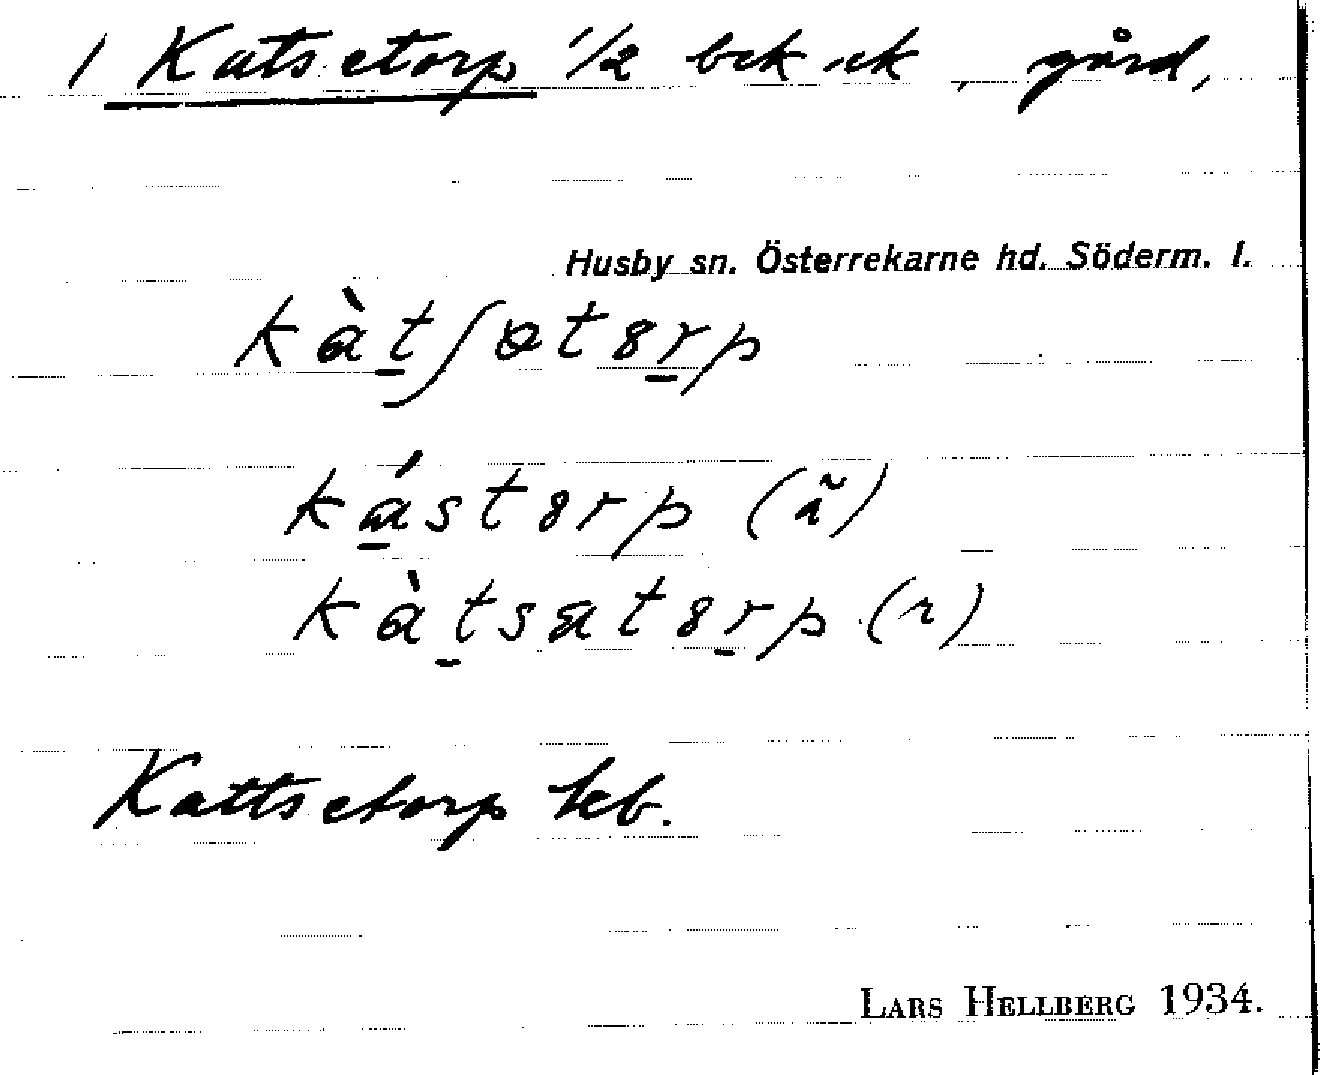 1 Katsetorp 1/2 bek ek, gård,
Husby sn. Österrekarne hd. Söderm. l.
kàt̠ʃətɞr̠p
ká̠stɞrp (ã)
kàt̠satɞr̠p (r)
Kattsetorp keb.
LARS HELLBERG 1934.